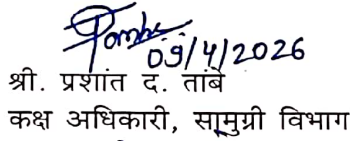 09/4/2026
श्री. प्रशांत द. तांबे
कक्ष अधिकारी, सामुग्री विभाग